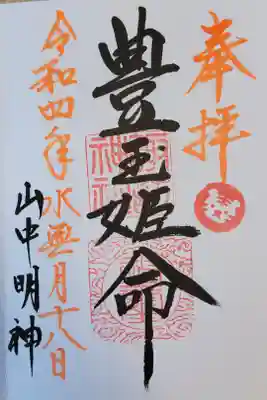 奉拝
豊玉姫命
山中明神
令和四年水無月十八日